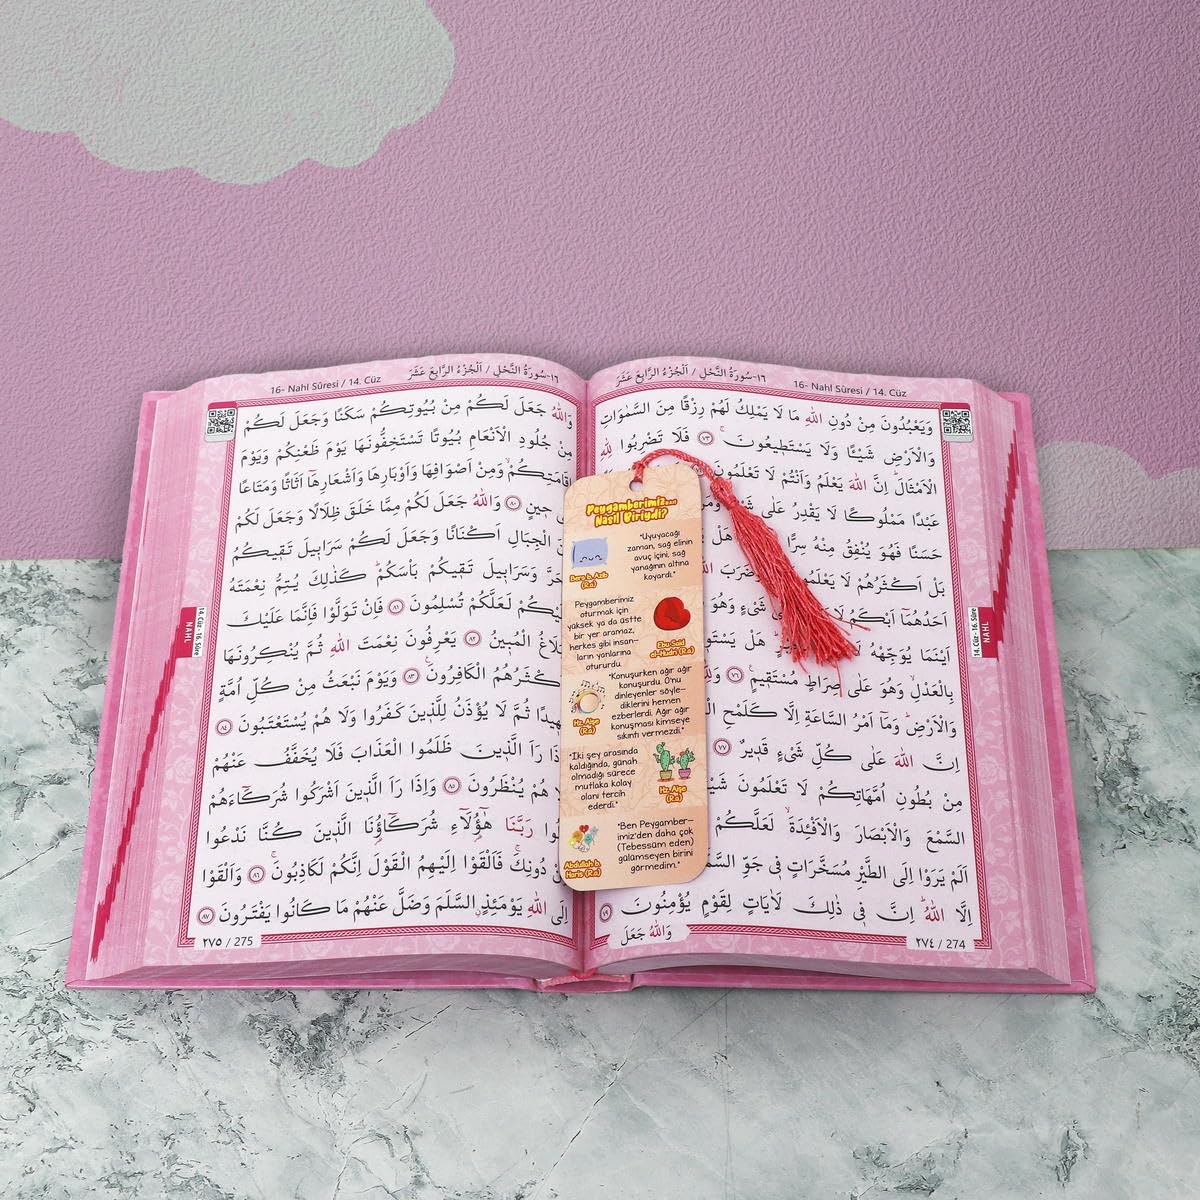 ١٦-سُورَةُ النَّحْلِ / اَلْجُزْءُ الرَّابِعَ عَشَرَ
16- Nahl Sûresi / 14. Cüz
وَيَعْبُدُونَ مِنْ دُونِ اللّٰهِ مَا لَا يَمْلِكُ لَهُمْ رِزْقًا مِنَ السَّمٰوَاتِ
وَالْاَرْضِ شَيْـًٔا وَلَا يَسْتَطٖيعُونَۚ ﴿٧٣﴾ فَلَا تَضْرِبُوا لِلّٰهِ
الْاَمْثَالَ اِنَّ اللّٰهَ يَعْلَمُ وَاَنْتُمْ لَا تَعْلَمُونَ
عَبْدًا مَمْلُوكًا لَا يَقْدِرُ عَلٰى شَیْءٍ
حَسَنًا فَهُوَ يُنْفِقُ مِنْهُ سِرًّا هَلْ
بَلْ اَكْثَرُهُمْ لَا يَعْلَمُونَ
اَحَدُهُمَٓا اَبْكَمُ لَا شَیْءٍ وَهُوَ
اَيْنَمَا يُوَجِّهْهُ لَا هَلْ يَسْتَوٖي
بِالْعَدْلِۙ وَهُوَ عَلٰى صِرَاطٍ مُسْتَقٖيمٍ ﴿٧٦﴾
وَالْاَرْضِؕ وَمَٓا اَمْرُ السَّاعَةِ اِلَّا كَلَمْحِ
اِنَّ اللّٰهَ عَلٰى كُلِّ شَیْءٍ قَدٖيرٌ ﴿٧٧﴾
مِنْ بُطُونِ اُمَّهَاتِكُمْ لَا تَعْلَمُونَ
السَّمْعَ وَالْاَبْصَارَ وَالْاَفْـِٔدَةَۙ لَعَلَّكُمْ
اَلَمْ يَرَوْا اِلَى الطَّيْرِ مُسَخَّرَاتٍ فٖي جَوِّ
اِلَّا اللّٰهُؕ اِنَّ فٖي ذٰلِكَ لَاٰيَاتٍ لِقَوْمٍ يُؤْمِنُونَ ﴿٧٩﴾
وَاللّٰهُ جَعَلَ
٢٧٤ / 274
14. Cüz - 16. Sûre
NAHL
Peygamberimiz
Nasıl Biriydi?
"Uyuyacağı
zaman, sağ elinin
avuç içini, sağ
yanağının altına
koyardı."
Bera b. Azib
(R.a)
Peygamberimiz
oturmak için
yüksek ya da üstte
bir yer aramaz,
herkes gibi insan-
ların yanlarına
otururdu.
Ebu Said
el-Hudri (R.a)
"Konuşurken ağır ağır
konuşurdu. O'nu
dinleyenler söyle-
diklerini hemen
ezberlerdi. Ağır ağır
konuşması kimseye
sıkıntı vermezdi."
Hz. Aişe
(R.a)
"İki şey arasında
kaldığında, günah
olmadığı sürece
mutlaka kolay
olanı tercih
ederdi."
Hz. Aişe
(R.a)
"Ben Peygamber-
imiz'den daha çok
(Tebessüm eden)
gülümseyen birini
görmedim."
Abdullah b.
Haris (R.a)
١٦-سُورَةُ النَّحْلِ / اَلْجُزْءُ الرَّابِعَ عَشَرَ
16- Nahl Sûresi / 14. Cüz
وَاللّٰهُ جَعَلَ لَكُمْ مِنْ بُيُوتِكُمْ سَكَنًا وَجَعَلَ لَكُمْ
مِنْ جُلُودِ الْاَنْعَامِ بُيُوتًا تَسْتَخِفُّونَهَا يَوْمَ ظَعْنِكُمْ وَيَوْمَ
اِقَامَتِكُمْۙ وَمِنْ اَصْوَافِهَا وَاَوْبَارِهَا وَاَشْعَارِهَٓا اَثَاثًا وَمَتَاعًا
حٖينٍ ﴿٨٠﴾ وَاللّٰهُ جَعَلَ لَكُمْ مِمَّا خَلَقَ ظِلَالًا وَجَعَلَ لَكُمْ
الْجِبَالِ اَكْنَانًا وَجَعَلَ لَكُمْ سَرَابٖيلَ تَقٖيكُمُ
وَسَرَابٖيلَ تَقٖيكُمْ بَأْسَكُمْؕ كَذٰلِكَ يُتِمُّ نِعْمَتَهُ
لَعَلَّكُمْ تُسْلِمُونَ ﴿٨١﴾ فَاِنْ تَوَلَّوْا فَاِنَّمَا عَلَيْكَ
الْمُبٖينُ ﴿٨٢﴾ يَعْرِفُونَ نِعْمَتَ اللّٰهِ ثُمَّ يُنْكِرُونَهَا
الْكَافِرُونَ۟ ﴿٨٣﴾ وَيَوْمَ نَبْعَثُ مِنْ كُلِّ اُمَّةٍ
ثُمَّ لَا يُؤْذَنُ لِلَّذٖينَ كَفَرُوا وَلَا هُمْ يُسْتَعْتَبُونَ ﴿٨٤﴾
رَاَ الَّذٖينَ ظَلَمُوا الْعَذَابَ فَلَا يُخَفَّفُ عَنْهُمْ
هُمْ يُنْظَرُونَ ﴿٨٥﴾ وَاِذَا رَاَ الَّذٖينَ اَشْرَكُوا شُرَكَٓاءَهُمْ
رَبَّنَا هٰٓؤُ۬لَٓاءِ شُرَكَٓاؤُ۬نَا الَّذٖينَ كُنَّا نَدْعُوا
دُونِكَۚ فَاَلْقَوْا اِلَيْهِمُ الْقَوْلَ اِنَّكُمْ لَكَاذِبُونَۚ ﴿٨٦﴾ وَاَلْقَوْا
اِلَى اللّٰهِ يَوْمَئِذٍ السَّلَمَ وَضَلَّ عَنْهُمْ مَا كَانُوا يَفْتَرُونَ ﴿٨٧﴾
٢٧٥ / 275
14. Cüz - 16. Sûre
NAHL